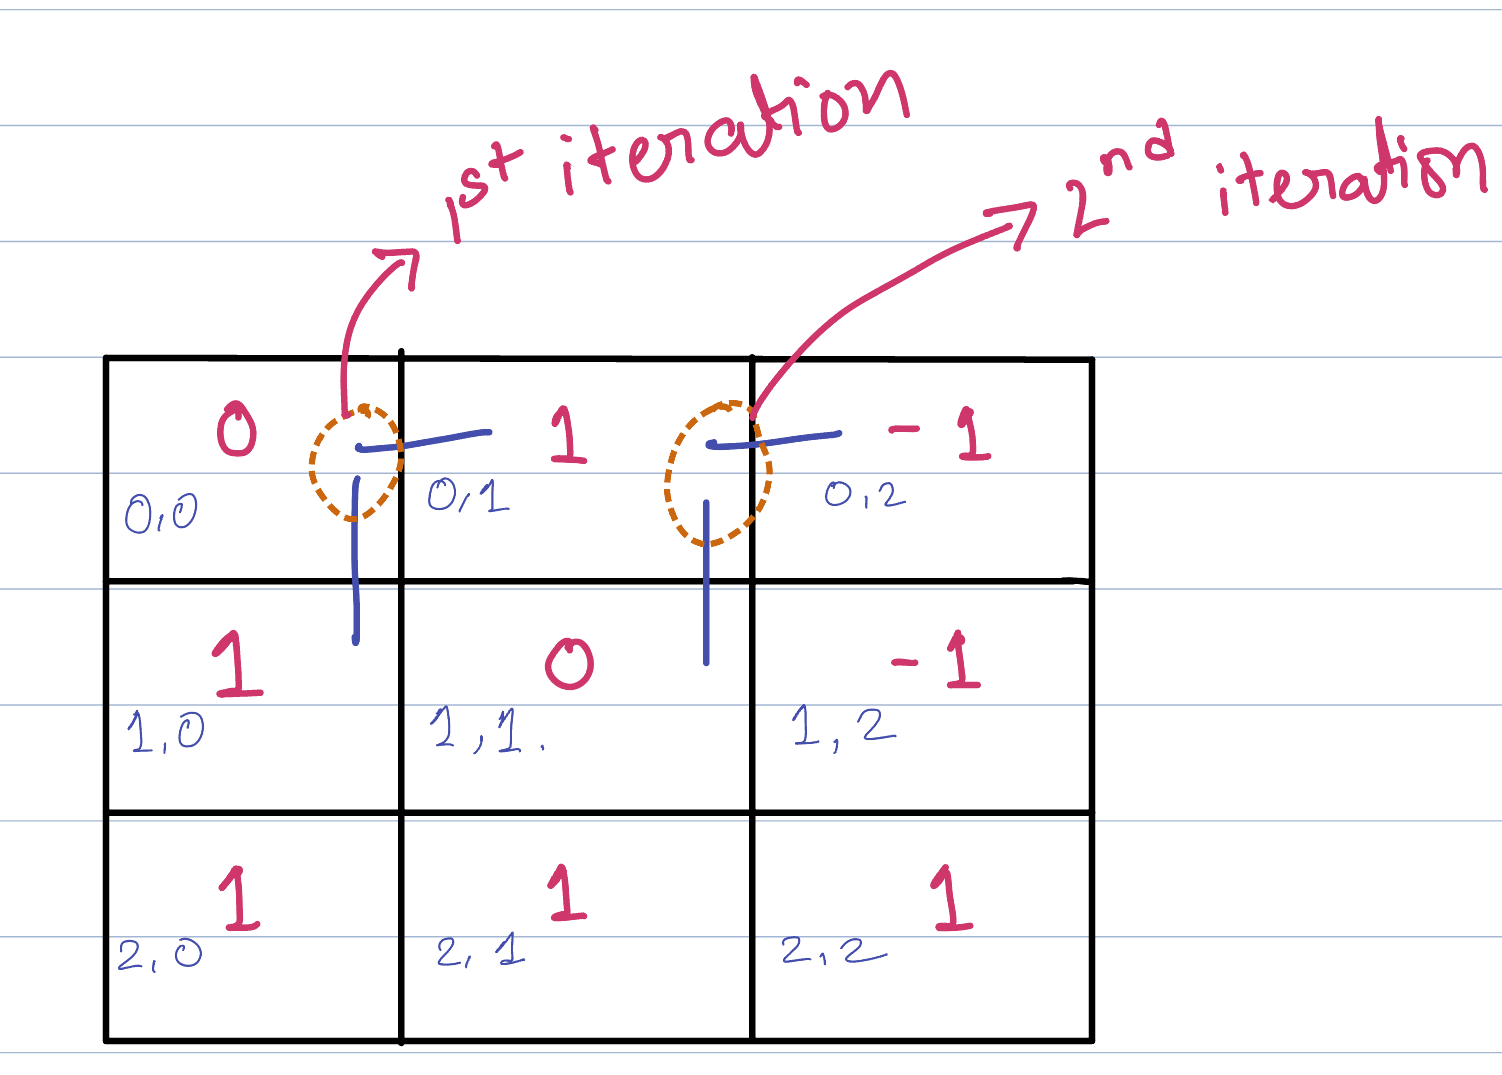 1st iteration
2nd iteration
0 1 -1
0,0 0,1 0,2
1 0 -1
1,0 1,1. 1,2
1 1 1
2,0 2,1 2,2